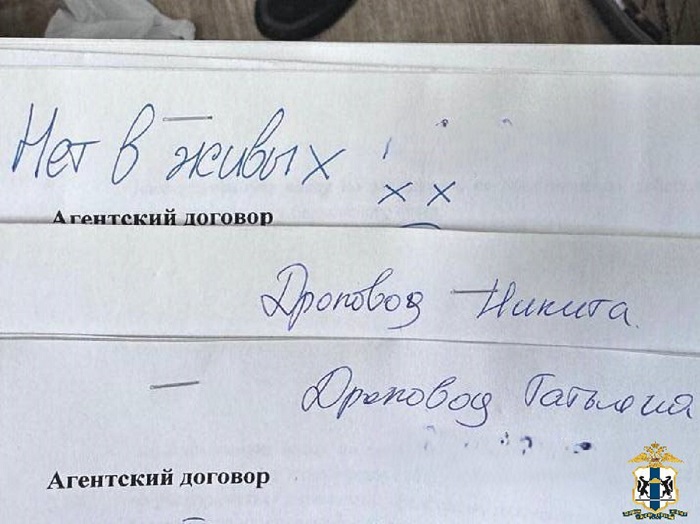 Нет в живых
Агентский договор
Дроповод Никита
Дроповод Татьяна
Агентский договор